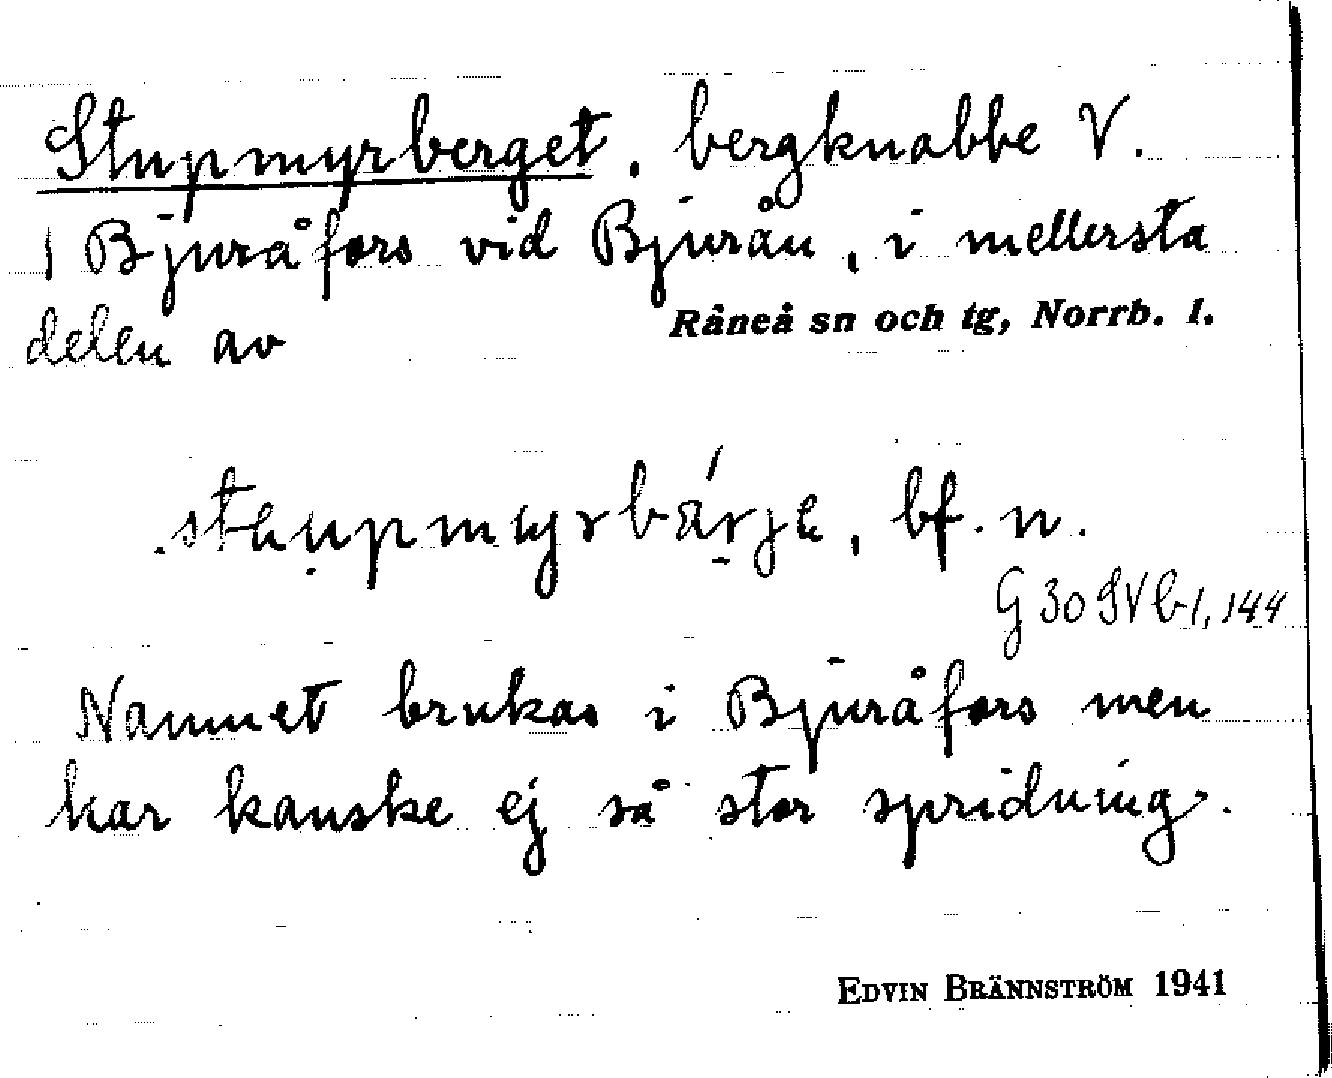 Stupmyrberget, bergknabbe V.
i Bjuråfors vid Bjurån, i mellersta
delen av Råneå sn och tg, Norrb. l.
stæupmyrbä́rje, bf. n.
G 30 SV b1, 144
Namnet brukas i Bjuråfors men
har kanske ej så stor spridning.
EDVIN BRÄNNSTRÖM 1941